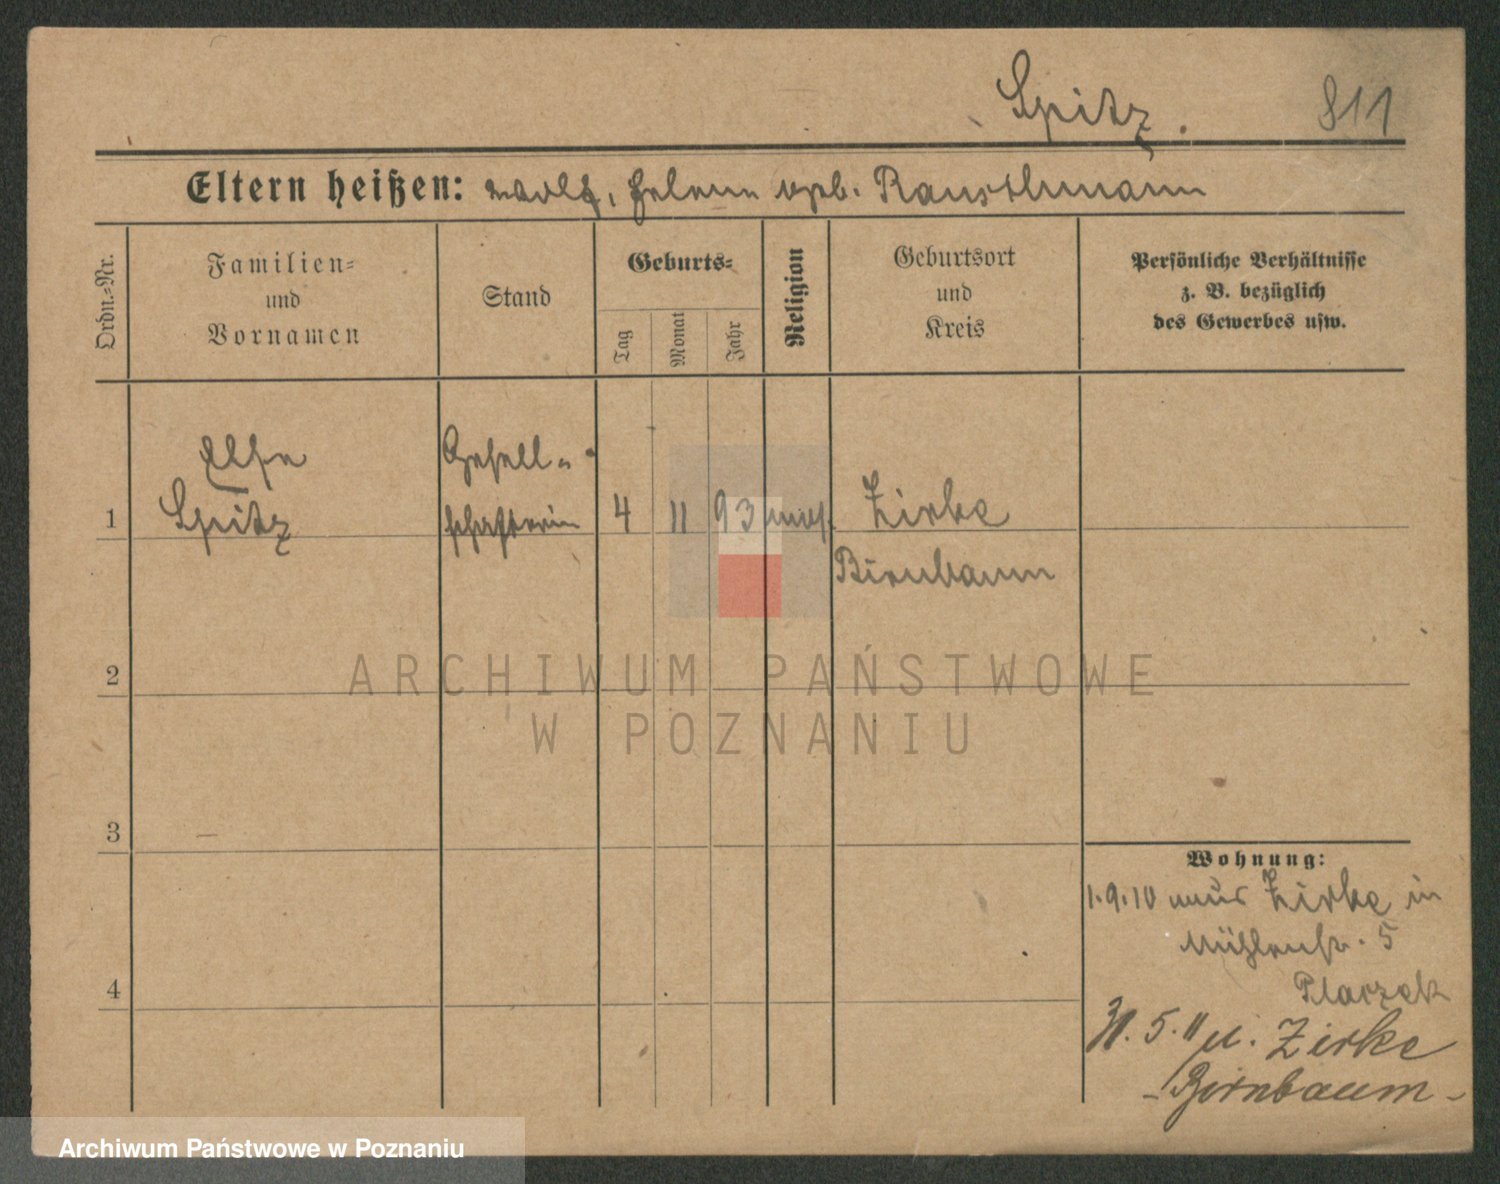 Spitz. 811
Eltern heißen: Wolf, Helene geb. Rausthmann
Ordn.=Nr.
Familien=
und
Vornamen
Stand
Geburts=
Tag
Monat
Jahr
Religion
Geburtsort
und
Kreis
Persönliche Verhältnisse
z. B. bezüglich
des Gewerbes usw.
Else Gesell-
1 Spitz schafterin 4 11 93 mos. Zirke
Birnbaum
2
ARCHIWUM PAŃSTWOWE
W POZNANIU
3
4
Wohnung:
1.9.10 aus Zirke in
Mühlenstr. 5
Placzek
31. 5. 11 n. Zirke
- Birnbaum -
Archiwum Państwowe w Poznaniu